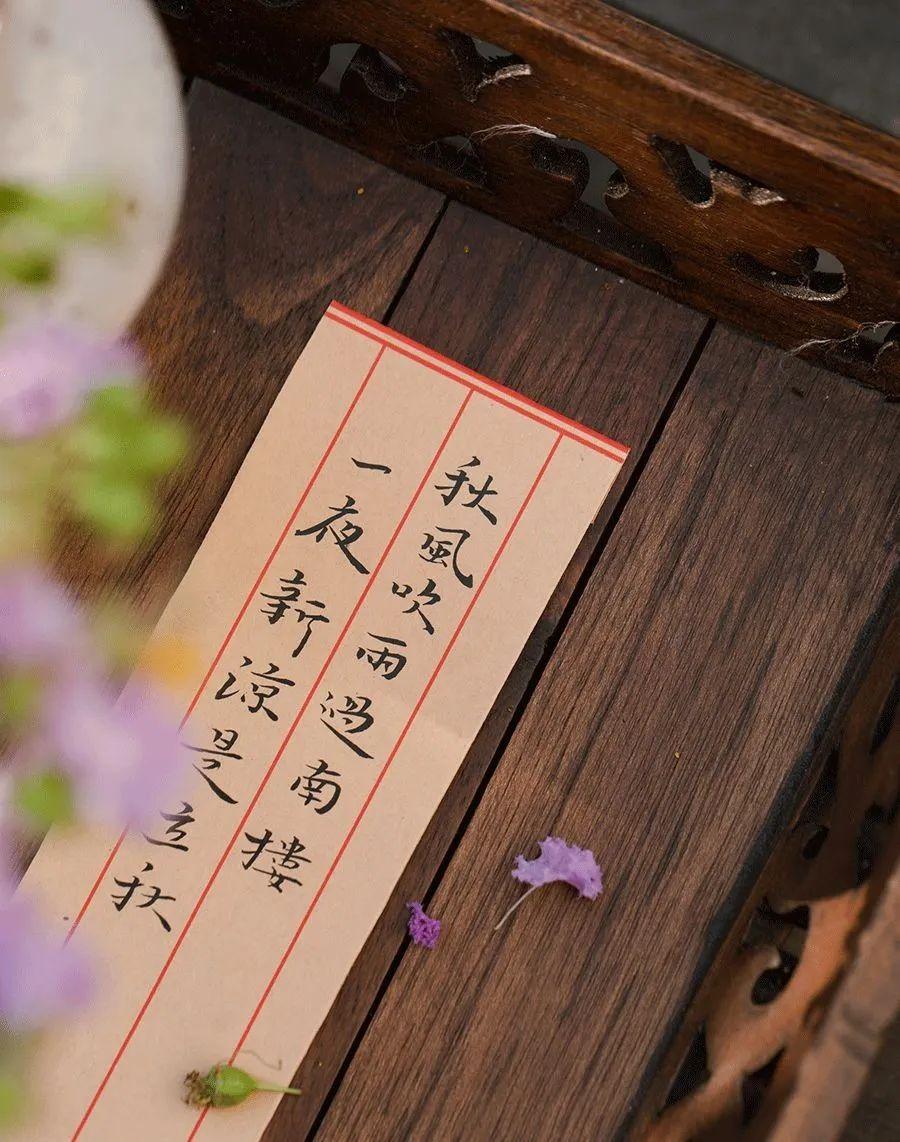 秋風吹雨過南樓
一夜新涼是立秋